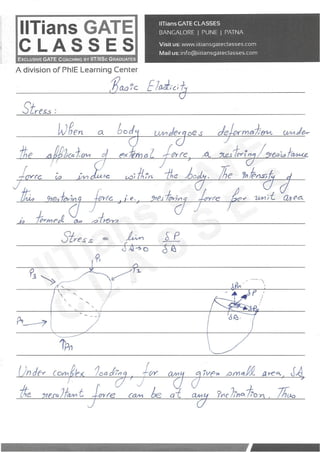 IITians GATE
CLASSES
EXCLUSIVE GATE COACHING BY IIT/IISc GRADUATES
A division of PhIE Learning Center
IITians GATE CLASSES
BANGALORE | PUNE | PATNA
Visit us: www.iitiansgateclasses.com
Mail us: info@iitiansgateclasses.com
Basic Elasticity
Stress:
When a body undergoes deformation under
the application of external force, a restoring/resistance
force is induce within the body. The intensity of
this restoring force, i.e., restoring force per unit area
is termed as stress.
Stress = lim δP
δA→0 δA
P1
P3 P2
P4
Pn
δPn
δP
δPs
δA
Under complex loading, for any given small area, δA,
the resultant force can be at any inclination. Thus